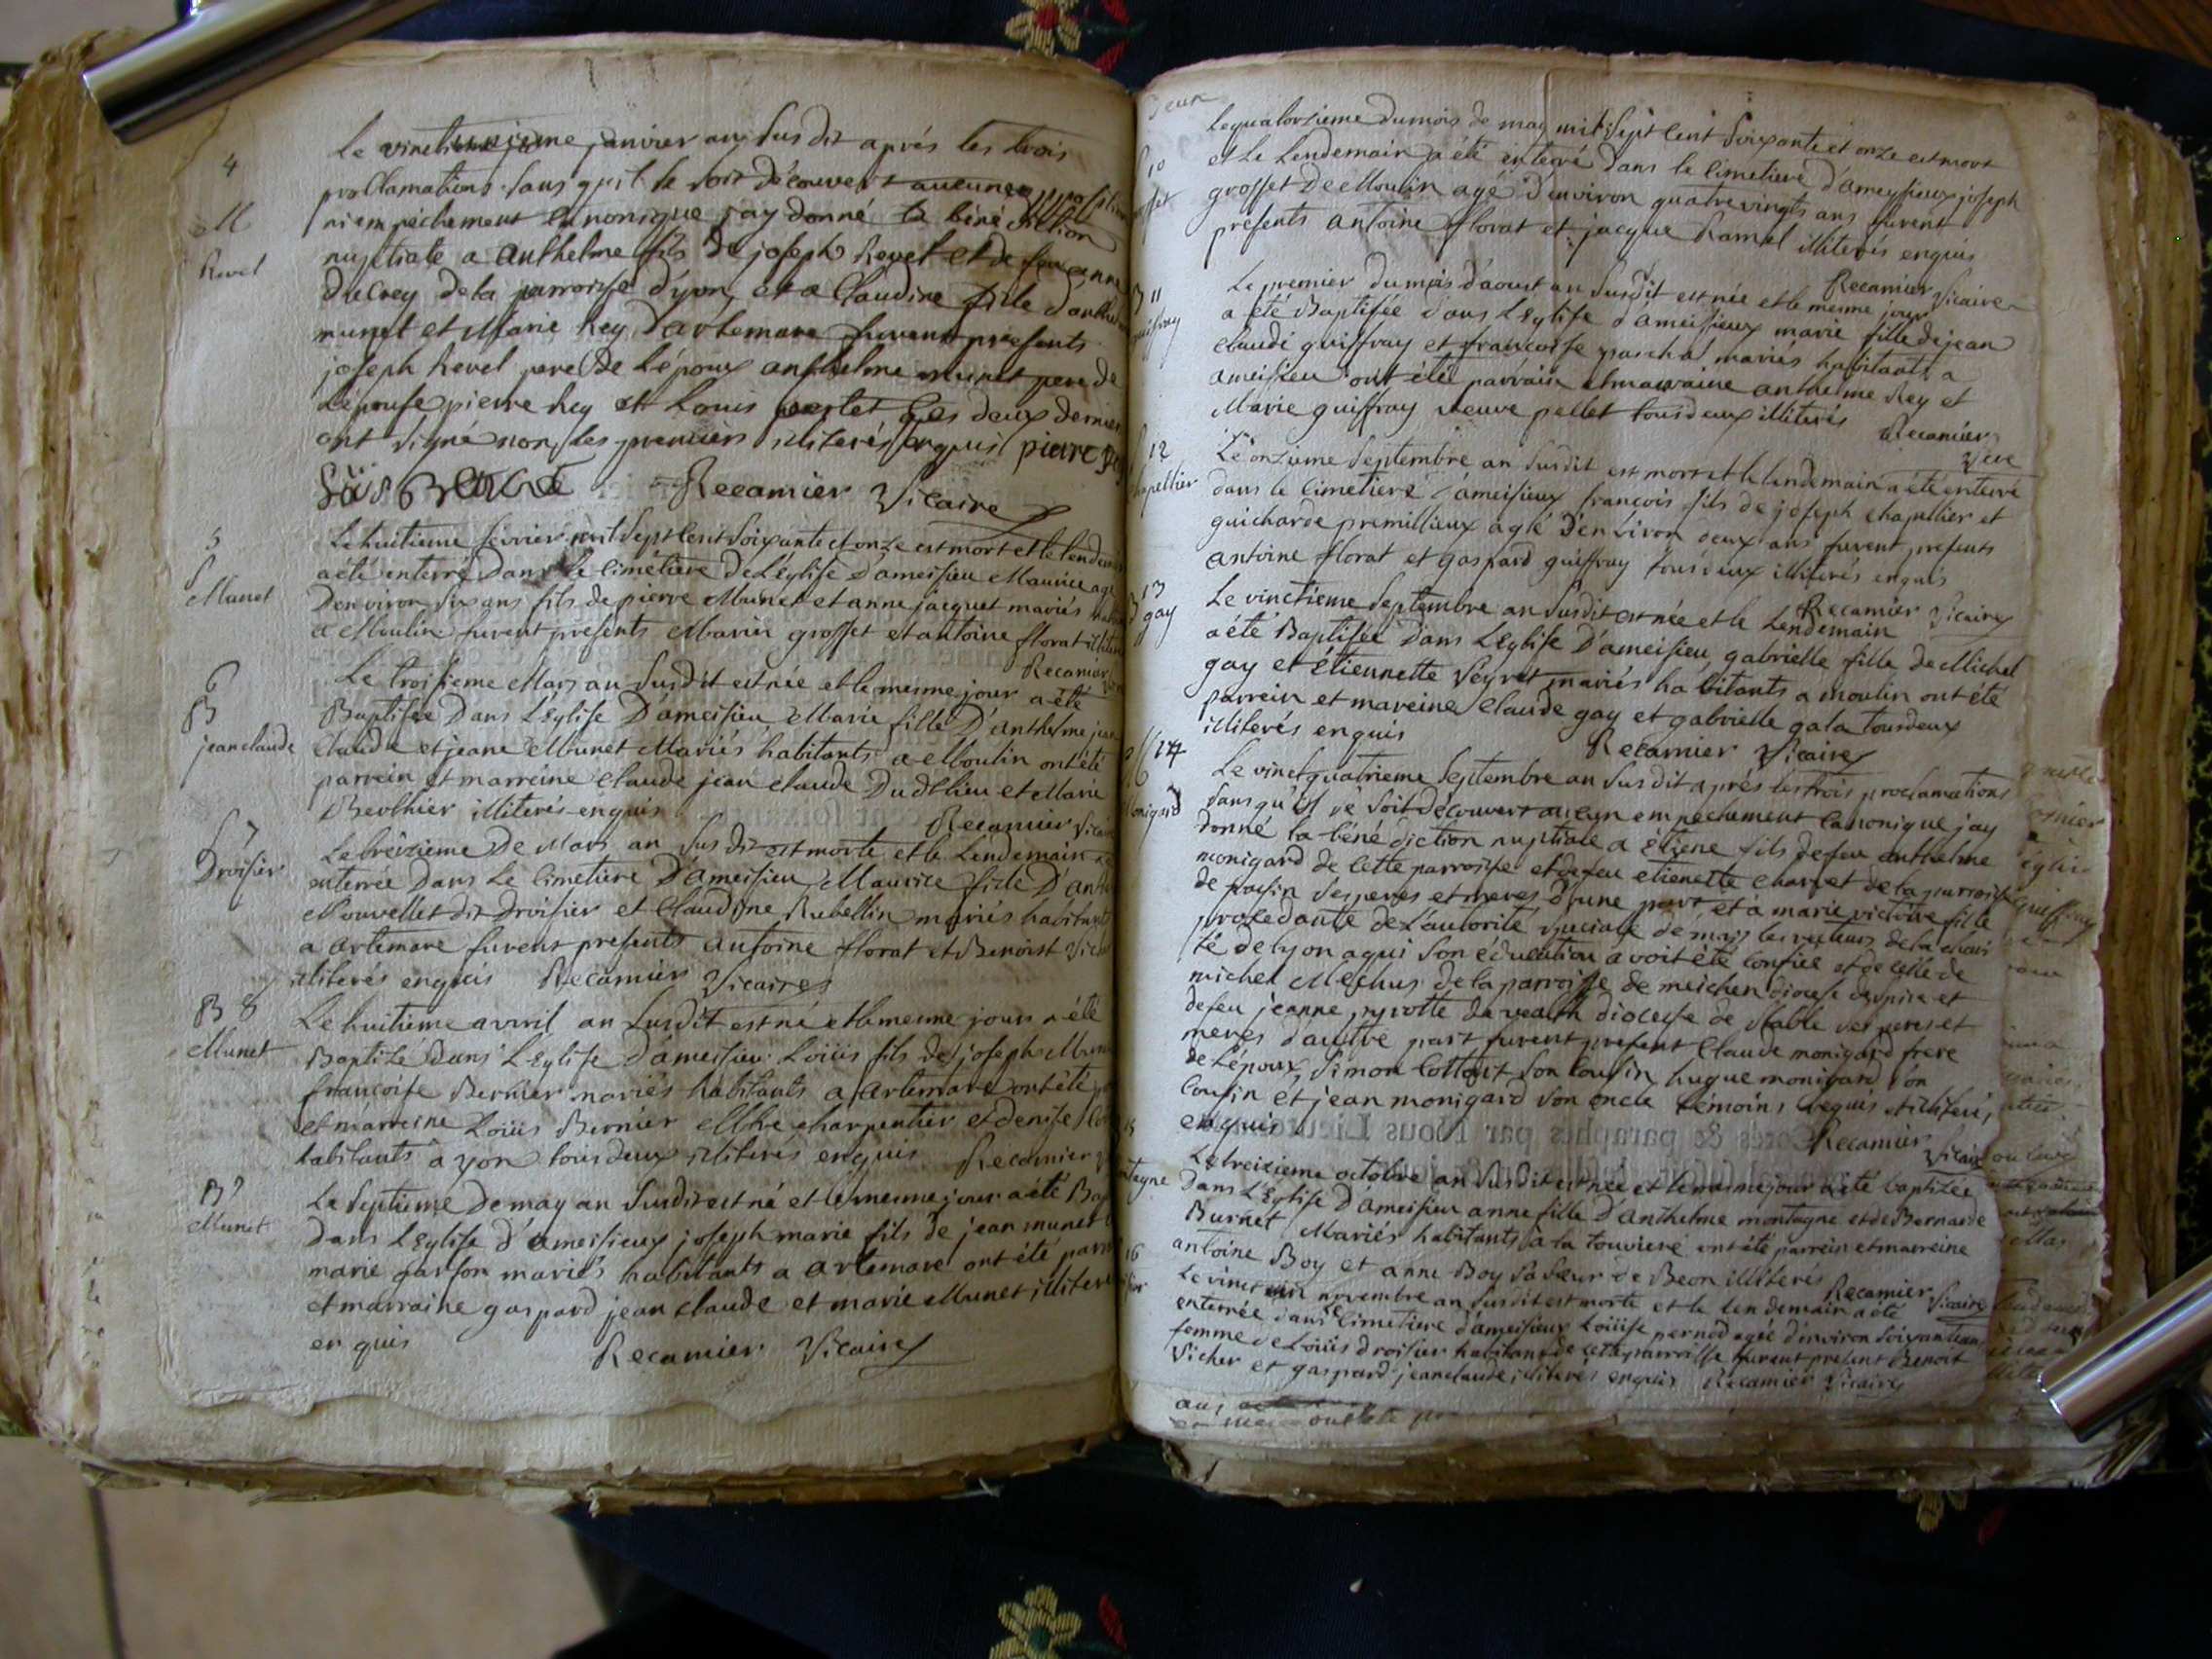 4
M
Revel
Le vinctunzieme janvier an susdit aprés les trois
proclamations sans qu'il se soit découvert aucune opposition
ni empéchement canonique jay donné la bénédiction
nuptiale a anthelme fils de joseph Revel et de feu anne
ducrey de la parroisse d'yon et a Claudine fille d'anthelme
munet et Marie Rey d'artemare furent presents
joseph Revel pere de l'époux anthelme munet pere de
l'epouse pierre Rey et Louis les deux dernier
ont signé non les premiers illiterés enquis pierre Rey
Recamier Vicaire
5
S
Munet
Le huitieme fevrier mil sept cent soixante et onze est mort et le lendemain
a été enterré dans le cimetiere de L'église d'ameisieu Maurice agé
D'environ six ans fils de pierre Munet et anne jacquet mariés
a Moulin furent presents Marin grosset et antoine florat
Recamier
6
B
jeanclaude
Le troisieme Mars an susdit est née et le mesme jour a été
Baptisée Dans L'Eglise D'ameisieu Marie fille D'anthelme jean
claude et jeane Munet Mariés habitants a Moulin ont été
parrein et marreine Claude jean claude Dudit lieu et Marie
Berthier illiterés enquis
Recamier
S 7
Droisier
Le treizieme de Mars an susdit est morte et le Lendemain
enterrée Dans Le Cimetiere D'ameisieu Maurice fille D'
Nouvellet dit Droisier et Claudine Rubellin mariés habitants
a artemare furent presents antoine florat et Benoist
illiterés enquis Recamier Vicaire
B 8
Munet
Le huitieme avril an susdit est né et le mesme jour a été
Baptisé dans L'Eglise d'ameisieu Loüis fils de joseph Munet
francoise Bernier mariés habitants a Artemare ont été
et marreine Loüis Bernier Mtre charpentier et denise
habitants a yon tous deux illiterés enquis Recamier
B 9
Munet
Le septieme de may an susdit est né et le mesme jour a été
dans L'Eglise d'ameisieux joseph marie fils de jean munet
marie garson mariés habitants a artemare ont été
et marraine gaspard jean claude et marie Munet
enquis
Recamier Vicaire
S 10
Le quatorzieme du mois de may mil sept cent soixante et onze est mort
et le Lendemain a été enterré dans le cimetiere d'ameysieux joseph
grosset De Moulin agé d'environ quatre vingts ans furent
présents antoine florat et jacque Ramel illiterés enquis
Recamier Vicaire
B 11
guiffray
Le premier du mois d'aoust an susdit est née et le mesme jour
a été Baptisée dans L'Eglise d'ameisieux marie fille de jean
claude guiffray et francoise paschal mariés habitants a
ameisieu ont été parrain et marraine anthelme Rey et
Marie guiffray veuve pellet tous deux illiterés
Recamier
Vire
S 12
chapellier
Le onzieme septembre an susdit est mort et le lendemain a été enterré
dans le cimetiere d'ameisieux francois fils de joseph chapellier et
guicharde premillieux agé d'environ deux ans furent presents
antoine florat et gaspard guiffray tous deux illiterés enquis
Recamier Vicaire
13
B gay
Le vinctieme Septembre an susdit est née et le Lendemain
a été Baptisée Dans L'Eglise D'ameisieu gabrielle fille de Michel
gay et Étiennette Veyret mariés habitants a moulin ont été
parrein et mareine claude gay et gabrielle gala tous deux
illiterés enquis
Recamier Vicaire
M 14
Monigard
Le vinct quatrieme septembre an susdit aprés les trois proclamations
sans qu'il se soit découvert aucun empechement canonique jay
donné la bénédiction nuptiale a Etiene fils de feu anthelme
monigard de cette parroisse et de feu etienette charvet de la parroisse
de ses peres et meres d'une part et a marie victoire fille
procedante de l'autorité speciale de mrs les recteurs de la chari
té de lyon a qui son éducation avoit été confiée et de celle de
michel Mechus de la parroisse de meichen diocese de spire et
de feu jeanne diocese de ses peres et
meres d'autre part furent present Claude monigard frere
de L'époux, Simon Cottant son cousin hugue monigard son
cousin et jean monigard son oncle témoins requis et illiterés
enquis
Recamier Vicaire
15
Le treizieme octobre an susdit est née et le mesme jour a été baptizée
Dans L'Eglise D'ameisieu anne fille D'anthelme montagne et de Bernarde
Burnet Mariés habitants a la touviere ont été parrein et marreine
antoine Boy et anne Boy sa soeur de Beon illiterés
Recamier Vicaire
16
Le vinct novembre an susdit est morte et le lendemain a été
enterrée dans le cimetiere d'ameisieux Loüise pernod agée d'environ soixante ans
femme de Loüis droisier habitant de cette parroisse furent present Benoit
Vicher et gaspard jeanclaude illiterés enquis Recamier Vicaire